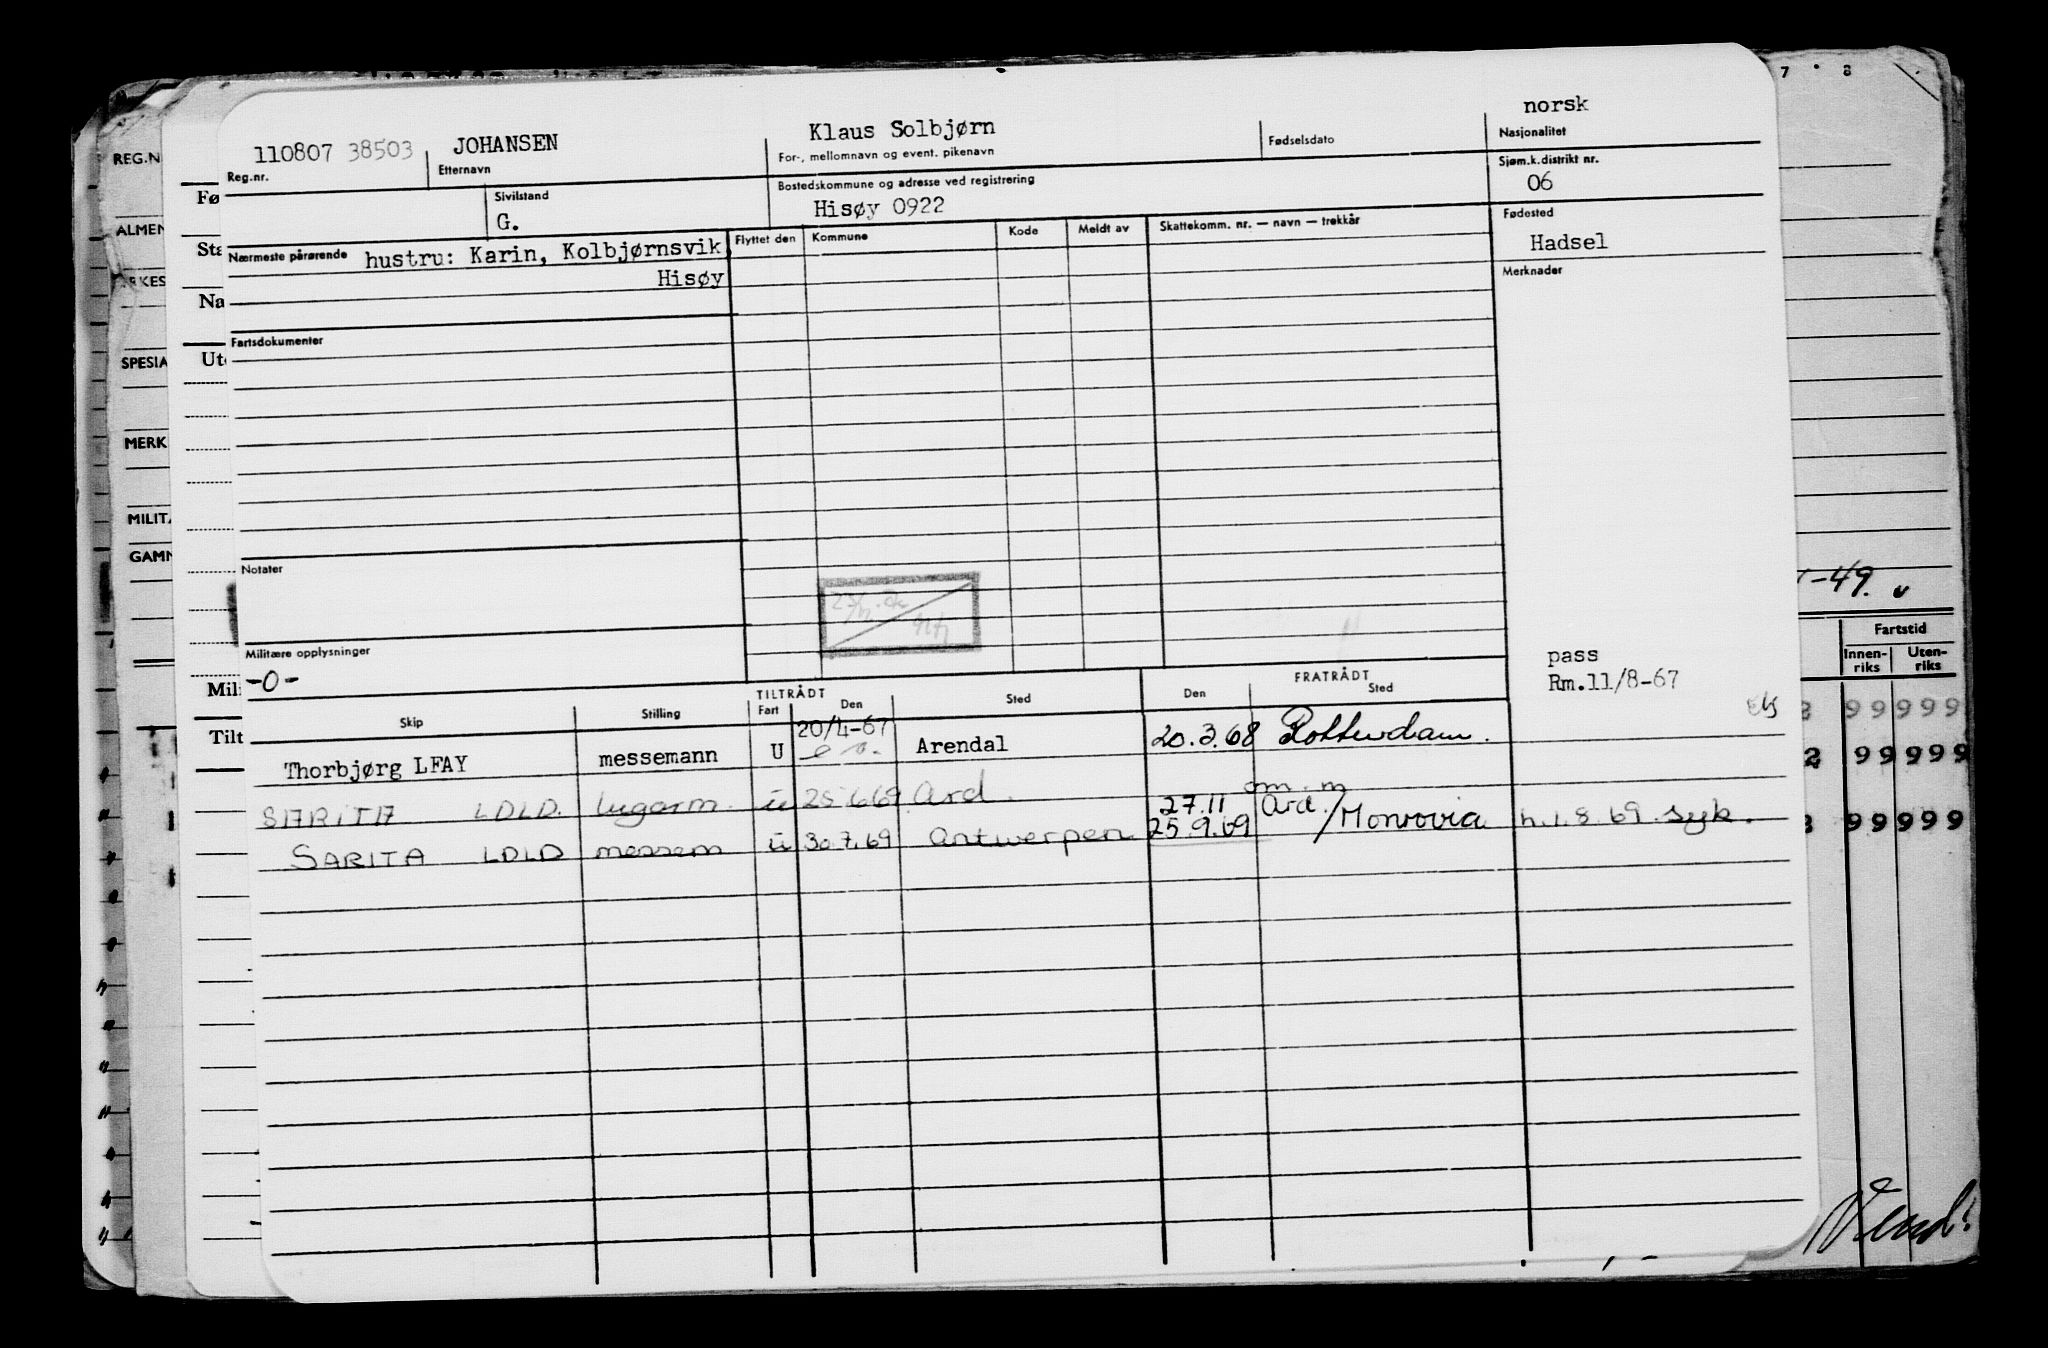 7 8
norsk
110807 38503 JOHANSEN Klaus Solbjørn
Reg.nr. Etternavn For-, mellomnavn og event. pikenavn Fødselsdato Nasjonalitet
REG.N
Sivilstand Bostedskommune og adresse ved registrering Sjøm.k.distrikt nr.
G. Hisøy 0922 06
Fø
ALMEN
Sta
Nærmeste pårørende hustru: Karin, Kolbjørnsvik Flyttet den Kommune Kode Meldt av Skattekomm. nr. — navn — trekkår Fødested
Hisøy Hadsel
Merknader
RKES
Na
Fartsdokumenter
SPESIA
Ut
MERK
MILITÆ
GAMM
Notater
-49.
Fartstid
Innen-riks Uten-riks
Militære opplysninger
-0- pass
Mil Rm.11/8-67
TILTRÅDT FRATRÅDT
Skip Stilling Fart Den Sted Den Sted
Tilt
20/4-67
Thorbjørg LFAY messemann U Arendal 20.3.68 Rotterdam.
99 999
2 99 999
om.m
SARITA LDLD. lugarm. u 25.6.69 Ard. 27.11 Ard.
SARITA LDLD messem u 30.7.69 Antwerpen 25.9.69 /Monrovia h.1.8.69 syk.
99 999
Vend!